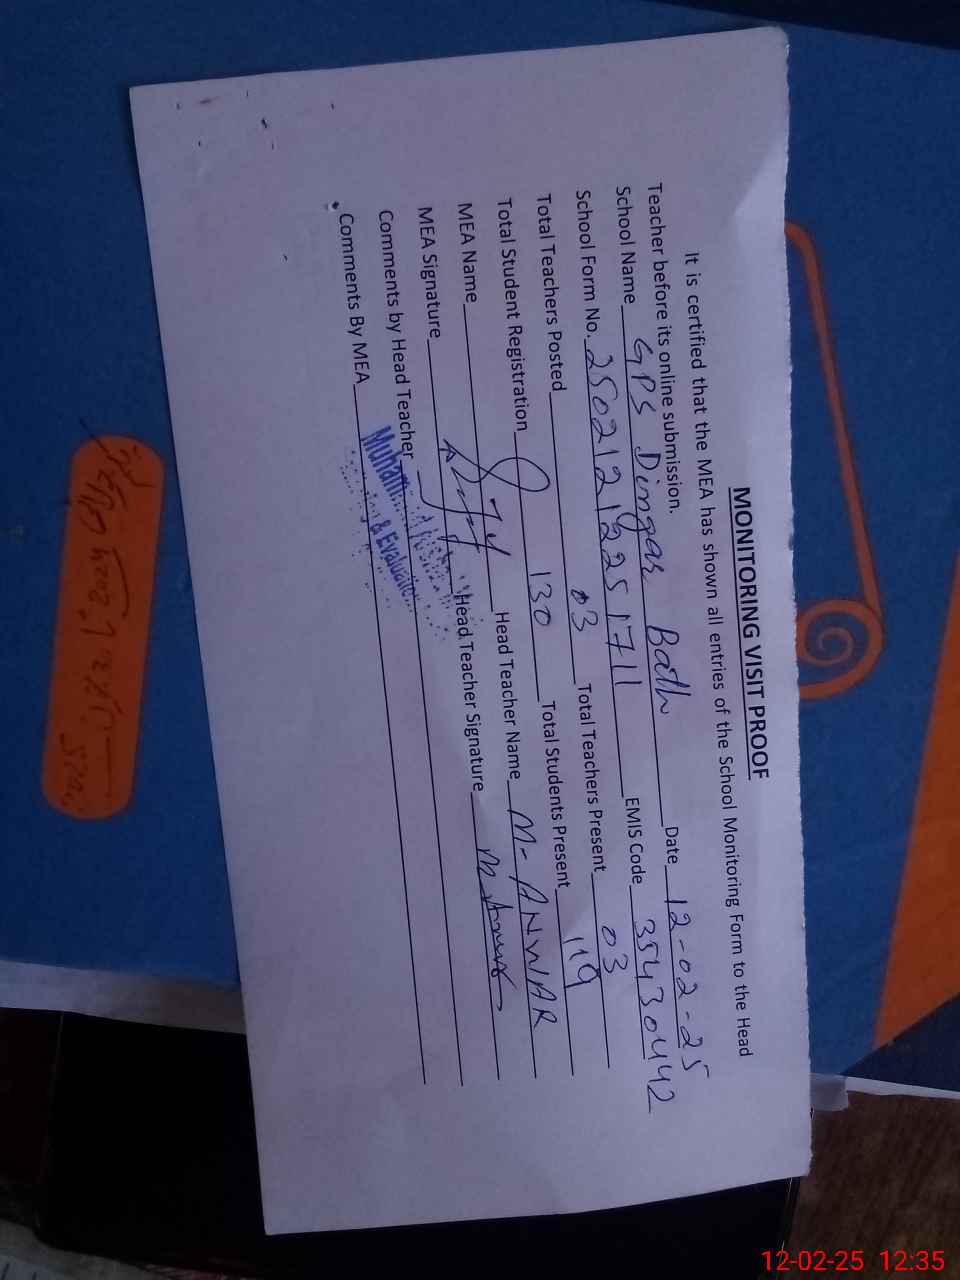 MONITORING VISIT PROOF
It is certified that the MEA has shown all entries of the School Monitoring Form to the Head
Teacher before its online submission.
School Name GPS Dingar Bath Date 12-02-25
School Form No. 25021212251711 EMIS Code 35430442
Total Teachers Posted 03 Total Teachers Present 03
Total Student Registration 130 Total Students Present 119
MEA Name Head Teacher Name M-ANWAR
MEA Signature Head Teacher Signature M Anwar
Comments by Head Teacher
Comments By MEA
& Evaluation
12-02-25 12:35